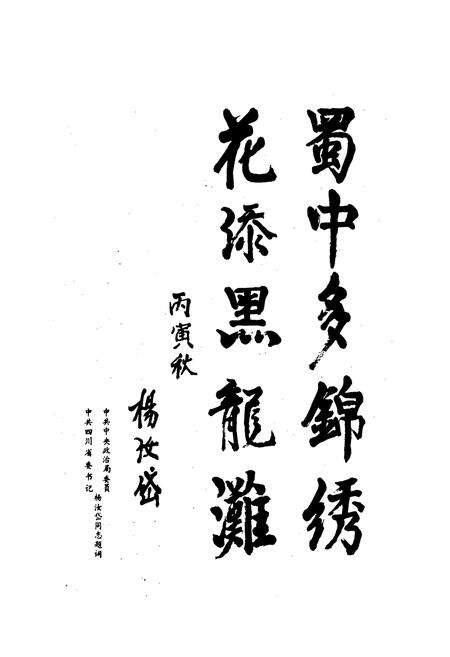 蜀中多錦绣
花添黑龍灘
丙寅秋
楊汝岱
中共中央政治局委员
中共四川省委书记
杨汝岱同志题词